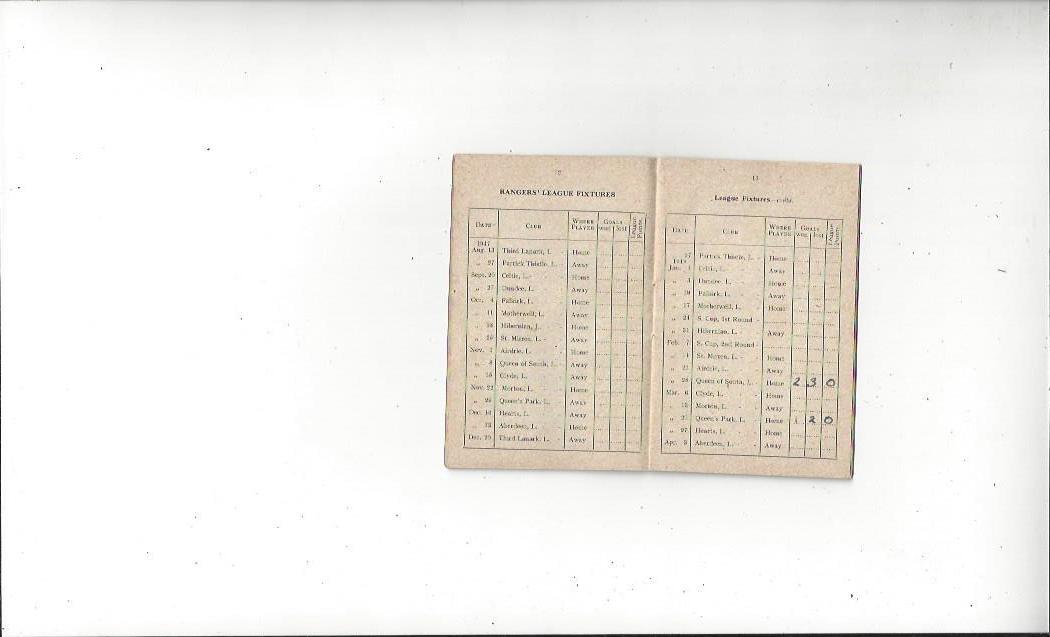 RANGERS' LEAGUE FIXTURES
DATE CLUB WHERE PLAYED GOALS won lost League Points
1947
Aug. 13 Third Lanark, L. Home
„ 27 Partick Thistle, L. Away
Sept. 20 Celtic, L. Home
„ 27 Dundee, L. Away
Oct. 4 Falkirk, L. Home
„ 11 Motherwell, L. Away
„ 18 Hibernian, L. Home
„ 25 St. Mirren, L. Away
Nov. 1 Airdrie, L. Home
„ 8 Queen of South, L. Away
„ 15 Clyde, L. Away
Nov. 22 Morton, L. Home
„ 29 Queen's Park, L. Away
Dec. Hearts, L. Away
„ 13 Aberdeen, L. Home
Dec. 20 Third Lanark, L. Away
League Fixtures—contd.
DATE CLUB WHERE PLAYED GOALS won lost League Points
„ 27 Partick Thistle, L. Home
1948
Jan. 1 Celtic, L. Away
„ 3 Dundee, L. Home
„ 10 Falkirk, L. Away
„ 17 Motherwell, L. Home
„ 24 S. Cup, 1st Round
„ 31 Hibernian, L. Away
Feb. 7 S. Cup, 2nd Round
„ St. Mirren, L. Home
„ 21 Airdrie, L. Away
„ 28 Queen of South, L. Home 2 3 0
Mar. 6 Clyde, L. Home
„ 13 Morton, L. Away
„ Queen's Park, L. Home 1 2 0
„ 27 Hearts, L. Home
Apr. 3 Aberdeen, L. Away